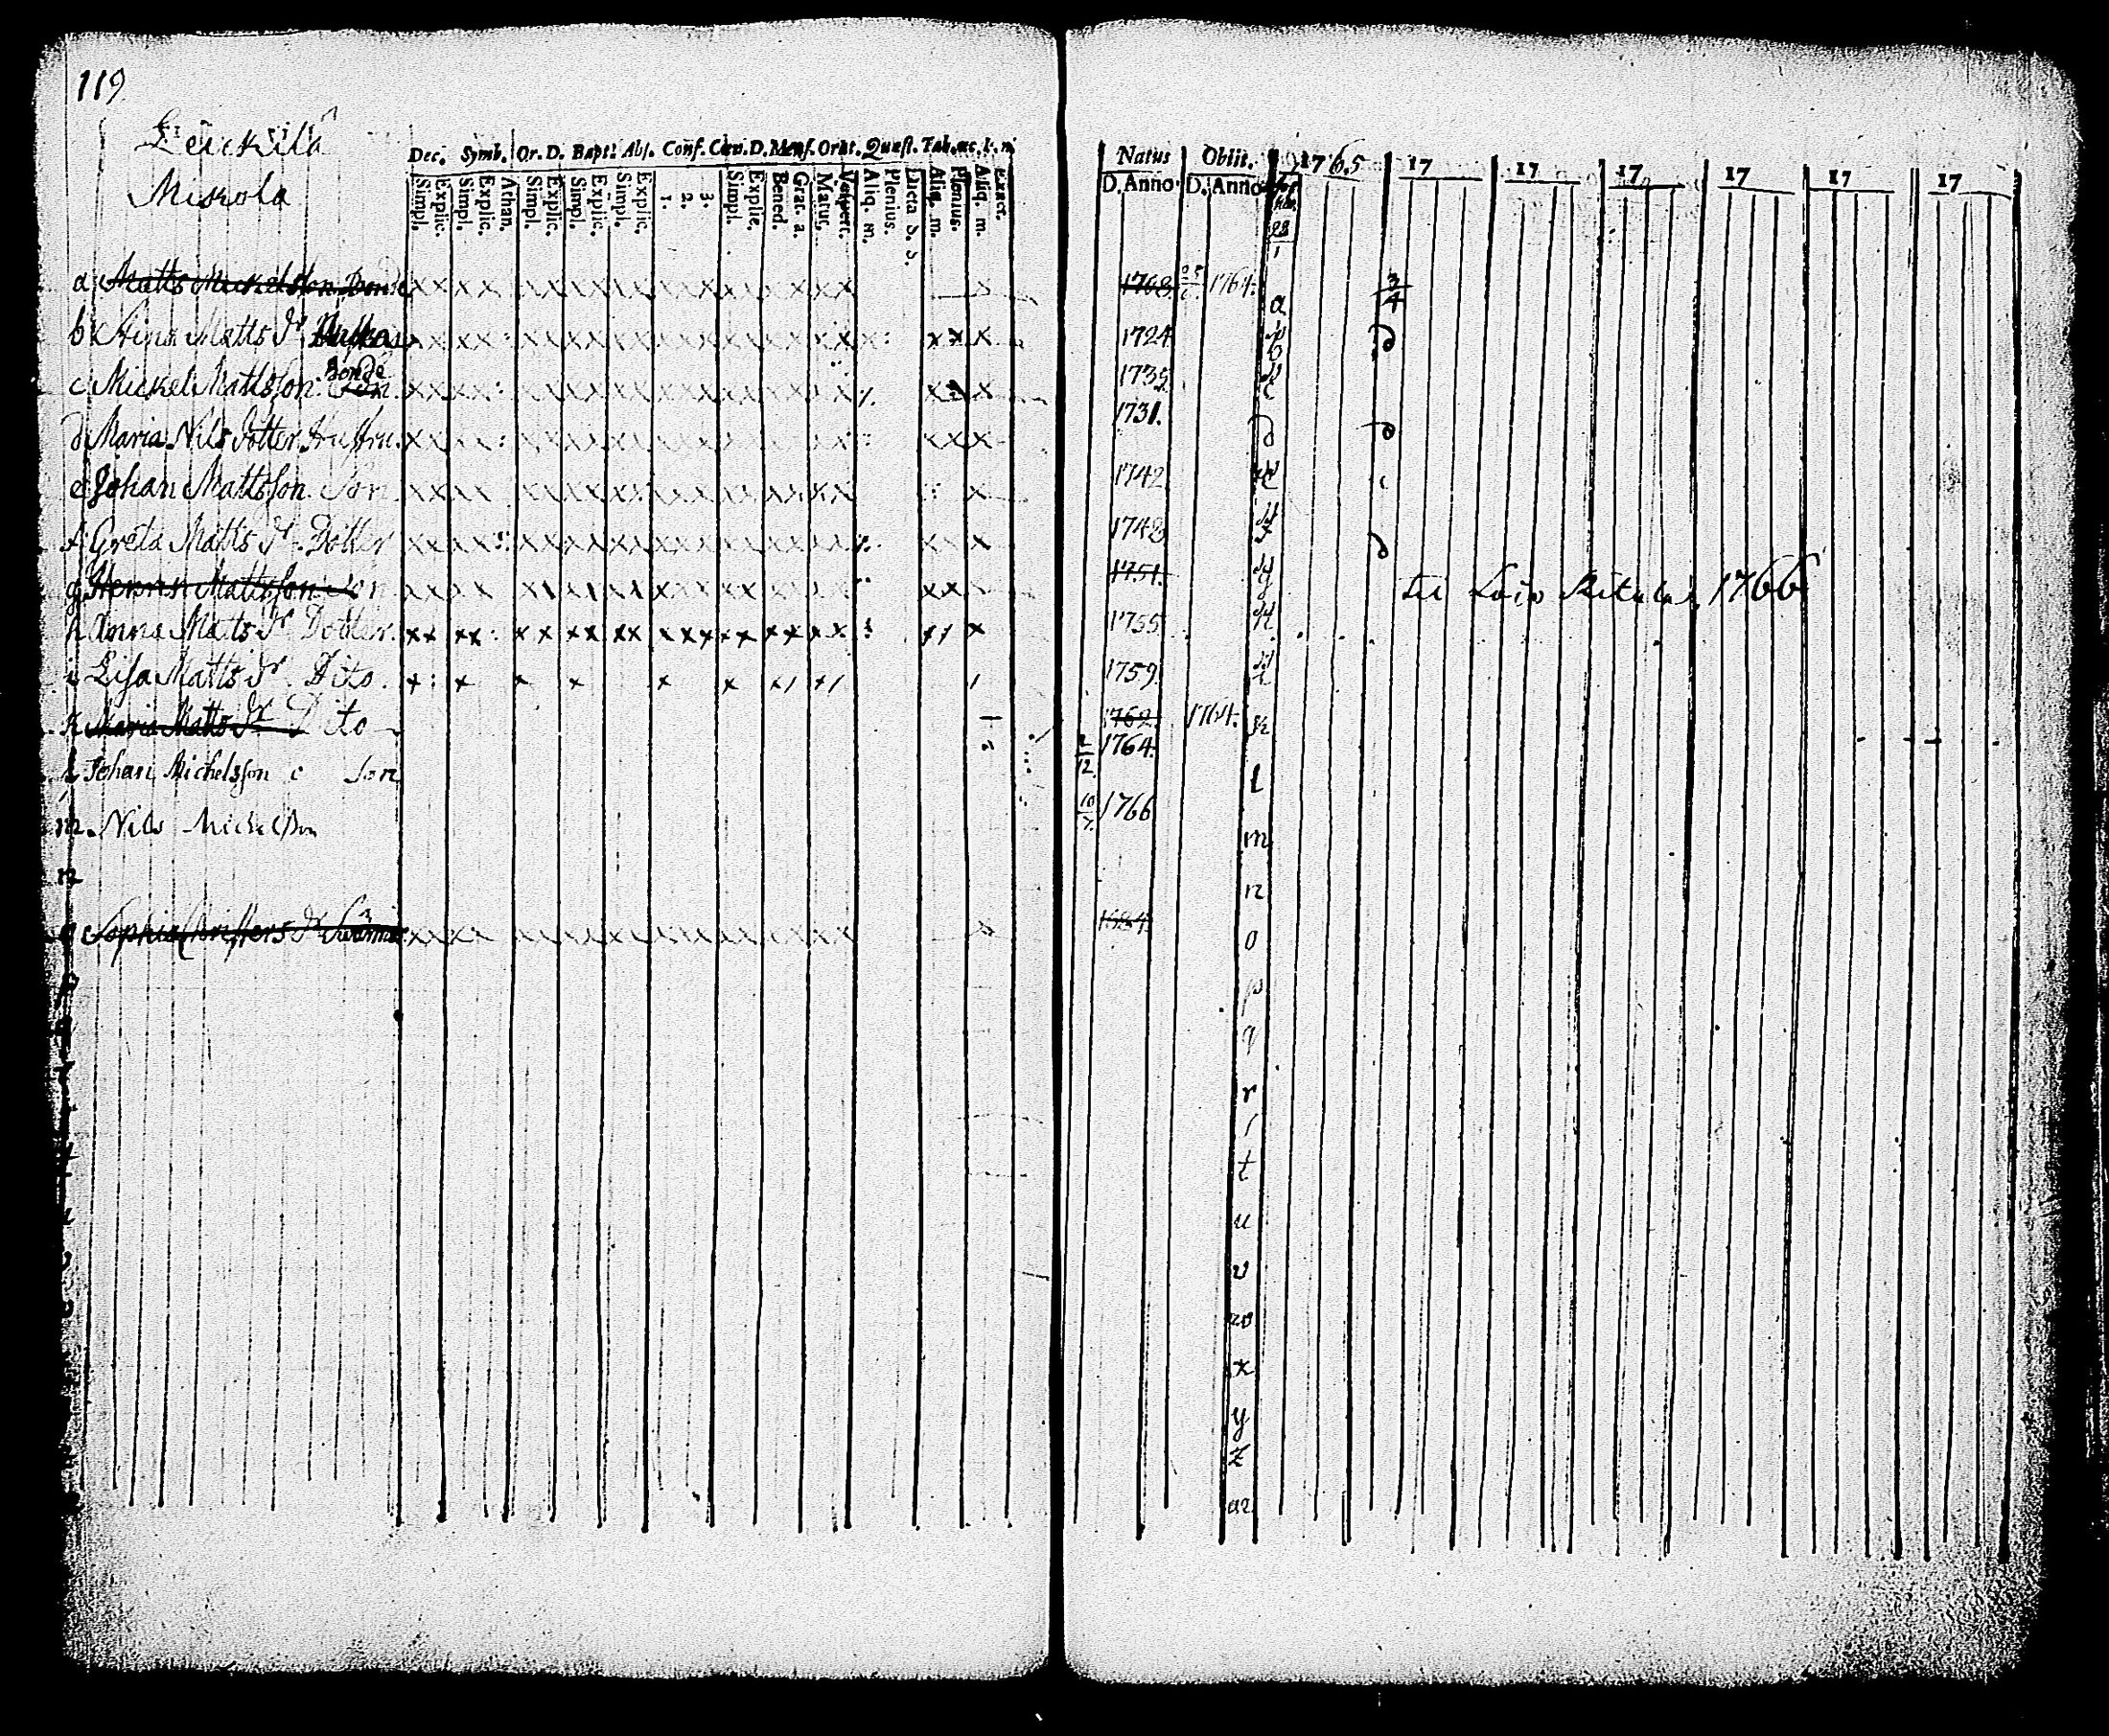 119
Leickilä
Miskola
Dec. Symb. Or. D. Bapt. Abs. Conf. Cœn. D. Mens. Orat. Quæst. Tab. œc. I. n
Simpl. Explic. Simpl. Explic. Athan. Simpl. Explic. Simpl. Explic. Simpl. Explic. 1. 2. 3. Simpl. Explic. Bened. Grat. a. Matut. Vespert. Aliq. m. Plenius. Dicta S. S. Aliq. m. Plenius. Aliq. m. Exact.
Natus Oblit. 1765 17 17 17 17 17 17
D. Anno. D. Anno
a Matts Mickelsson Bonde 1708 1764. a 3/4
b Matts dr 1724 b
c Mickel Mattsson Bonde Son. 1735 c
d Maria Nils dotter Hustru. 1731. d
e Johan Mattsson Son 1742 e
f Greta Matts dr. Dotter 1748 f
g Mattsson Son 1751. g 1766
h Anna Matts dr Dotter. 1755 h
i Lisa Matts dr. Dito. 1759 i
k Maria Matts dr Dito 1762 1764. k
l Johan Michelsson c Son 2/12. 1764. l
m. Nils Michelsson 10/7. 1766 m
n n
o Sophia dr 1684 o
p p
q q
r r
s s
t t
u u
v v
w w
x
y
z